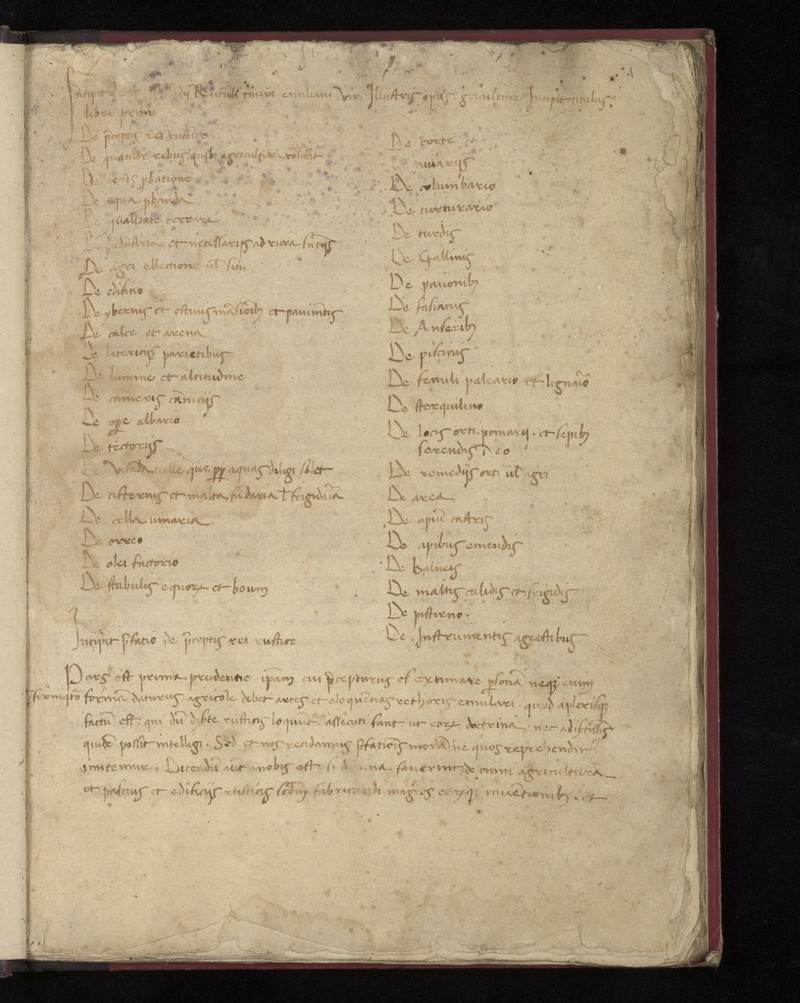 Incipit Rutili tauri emiliani Viri Illustris opus griculture Incipit titulus
libri primi
De p̄ceptis rei rustice
De quatuor rebus quib; agricultur
De eris p̄batione
De aqua p̄banda
De qualitate terrarū
De Industria et necessarijs ad rura
De agri ellectione ul̄ situ
De edifitio
De ybernis et estivis māsiōib; et pavimētis
De calce et arena
De latericijs parietibus
De lumine et altitudine
De cameris cāniciis
De ope albario
De tectorijs
De valle que ꝓp aquas diligi solet
De cisternis et maltha frigidaria
De cella vinaria
De orreo
De olei factorio
De stabulis equoꝝ et boum
De corte
aviarijs
De columbario
De turturario
De turdis
De Gallinis
De pavonib;
De fasianis
De Anserib;
De piscinis
De fenili paleario et lignaīo
De sterquilinio
De locis orti pomarij. et sepib;
serendis
De remedijs orti ul̄ agri
De area
De apiū castris
De apibus emendis
De balneis
De maltis calidis et frigidis
De pistrino.
De Instrumentis agrestibus
Incipit p̄fatio de p̄ceptis rei rustice
Pars est prima prudentie ipam cui p̄cepturus es extimare ꝑsonā neq; enim
formator agricole debet artes et eloquētias rethoris emulari. quod a plerisq;
factū est qui dū diserte rusticis loquūtr assecuti sunt ut eoꝝ doctrina nec a disertissīs
quidē possit intelligi. Sed et nos recidamus p̄fatiōis morā ne quos reprehendim
imitemur. Dicendū aūt a nobis est si divina faverint de omni agricultura
et pascuis et edificijs rusticis scdm fabricandi magros eorq; inventionib;. et